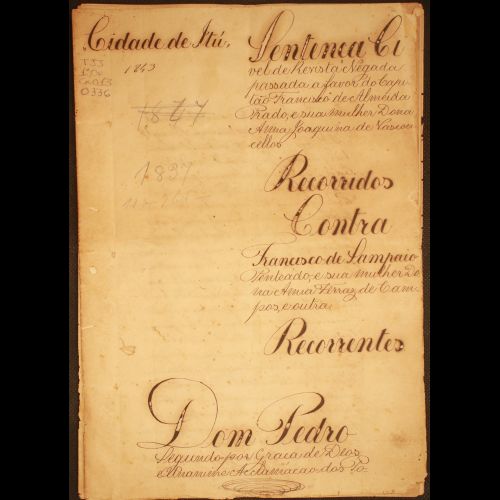 Cidade de Itú,
1843
1837
Sentença Ci
vel de Revista Negada
passada a favor do Capi
tão Francisco de Almeida
Prado, e sua mulher Dona
Anna Joaquina de Vascon
cellos
Recorridos
Contra
Francisco de Sampaio
Penteado, e sua mulher Do
na Anna Ferraz de Cam
pos, e outra
Recorrentes
Dom Pedro
Segundo por Graça de Deos,
e Unanime Acclamação dos Po-